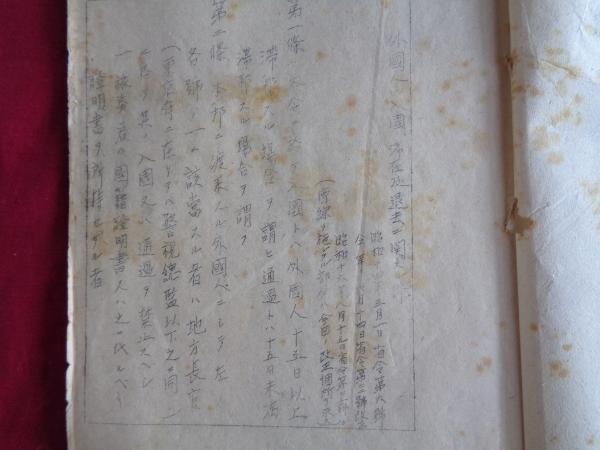 外國人ノ入國、滞在及退去ニ関スル
昭和十 年三月一日省令第六號
仝年 月十四日省令第二號改正
昭和十六年八月十五日省令第 號
(傍線ヲ施シタル部分ハ今回ノ改正個所ヲ示ス)
第一條 本令ニ於テ入國トハ外國人十五日以上
滞邦スル場合ヲ謂ヒ通過トハ十五日未満
滞邦スル場合ヲ謂フ
第二條 本邦ニ渡来スル外國人ニシテ左
各號ノ一ニ該當スル者ハ地方長官
(東京府ニ在リテハ警視總監以下之ニ同シ)
ニ於テ其ノ入國又ハ通過ヲ禁止スベシ
一 旅券又ハ國籍證明書又ハ之ニ代ルベキ
證明書ヲ所持セザル者